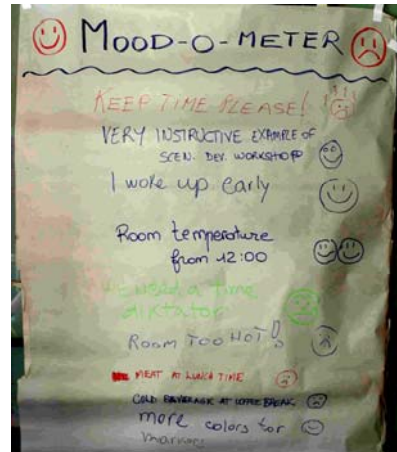 MOOD-O-METER
KEEP TIME PLEASE!
VERY INSTRUCTIVE EXAMPLE OF
SCEN. DEV. WORKSHOP
I woke up early
Room temperature
from 12:00
need a time
diktator
ROOM TOO HOT!
MEAT AT LUNCH TIME
COLD BEVERAGE AT COFFEE BREAK
more colors for
markers